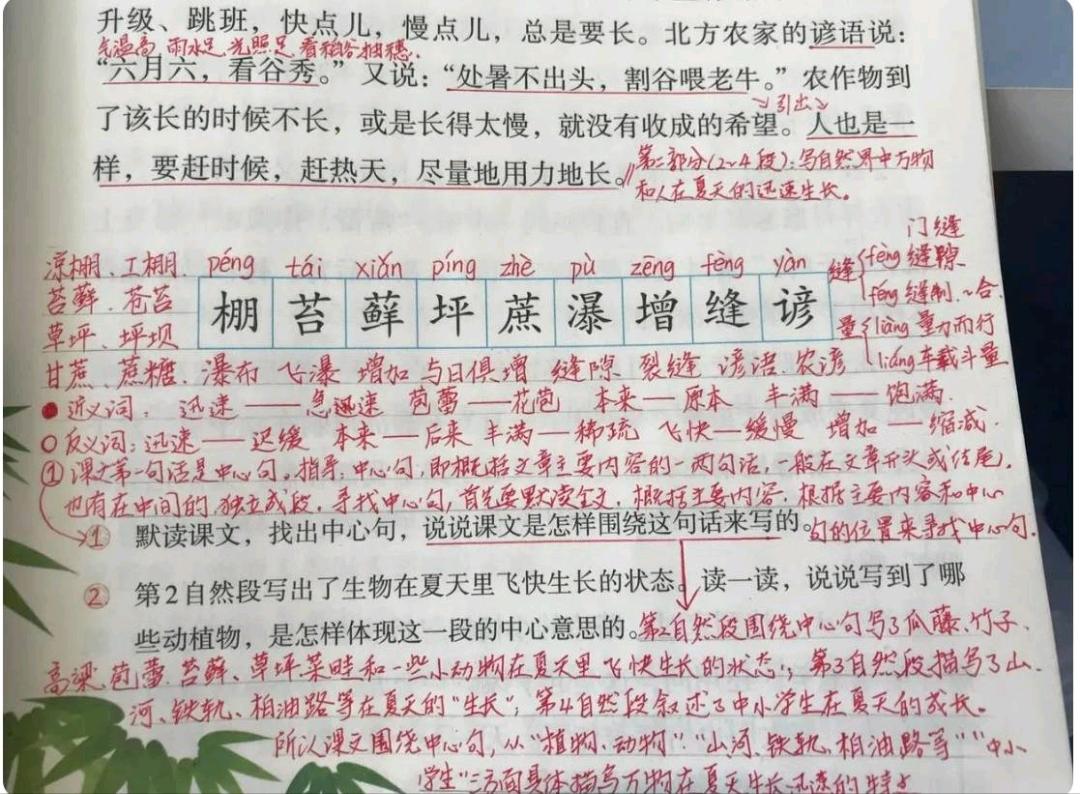 升级、跳班，快点儿，慢点儿，总是要长。北方农家的谚语说：
气温高，雨水足，光照足，看稻谷抽穗。
“六月六，看谷秀。”又说：“处暑不出头，割谷喂老牛。”农作物到
引出
了该长的时候不长，或是长得太慢，就没有收成的希望。人也是一
样，要赶时候，赶热天，尽量地用力地长。
第二部分(2~4段)：写自然界中万物
和人在夏天的迅速生长。
门缝
凉棚、工棚 péng tái xiǎn píng zhè pù zēng fèng yàn 缝 fèng 缝隙
苔藓、苍苔 棚 苔 藓 坪 蔗 瀑 增 缝 谚 féng 缝制、~合
草坪、坪坝 量 liàng 量力而行
甘蔗、蔗糖、瀑布 飞瀑 增加 与日俱增 缝隙 裂缝 谚语 农谚 liáng 车载斗量
近义词：迅速——急速 苞蕾——花苞 本来——原本 丰满——饱满.
反义词：迅速——迟缓 本来——后来 丰满——稀疏 飞快——缓慢 增加——缩减.
① 课文第一句话是中心句，指导：中心句，即概括文章主要内容的一两句话，一般在文章开头或结尾，
也有在中间的，独立成段，寻找中心句，首先要默读全文，概括主要内容，根据主要内容和中心
句的位置来寻找中心句.
① 默读课文，找出中心句，说说课文是怎样围绕这句话来写的。
② 第2自然段写出了生物在夏天里飞快生长的状态。读一读，说说写到了哪
些动植物，是怎样体现这一段的中心意思的。
第2自然段围绕中心句写了瓜藤、竹子、
高粱、苞蕾、苔藓、草坪、菜畦和一些小动物在夏天里飞快生长的状态；第3自然段描写了山、
河、铁轨、柏油路等在夏天的“生长”；第4自然段叙述了中小学生在夏天的成长。
所以课文围绕中心句，从“植物、动物”“山河、铁轨、柏油路等”“中小
学生”三方面具体描写万物在夏天生长迅速的特点